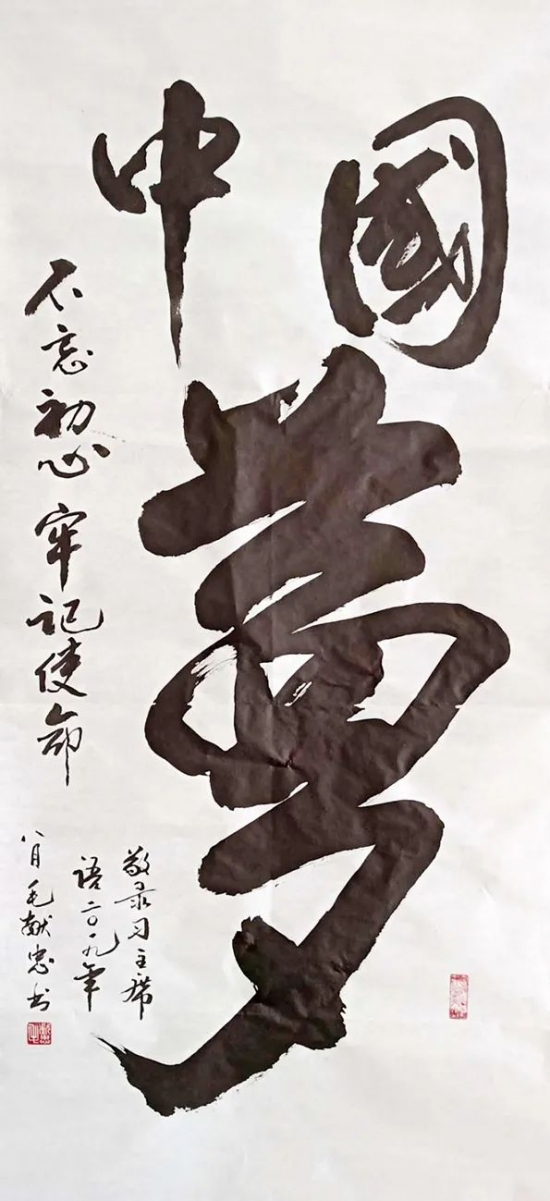 中國
夢
不忘初心 牢记使命
敬录习主席
语二〇一九年
八月毛献忠书